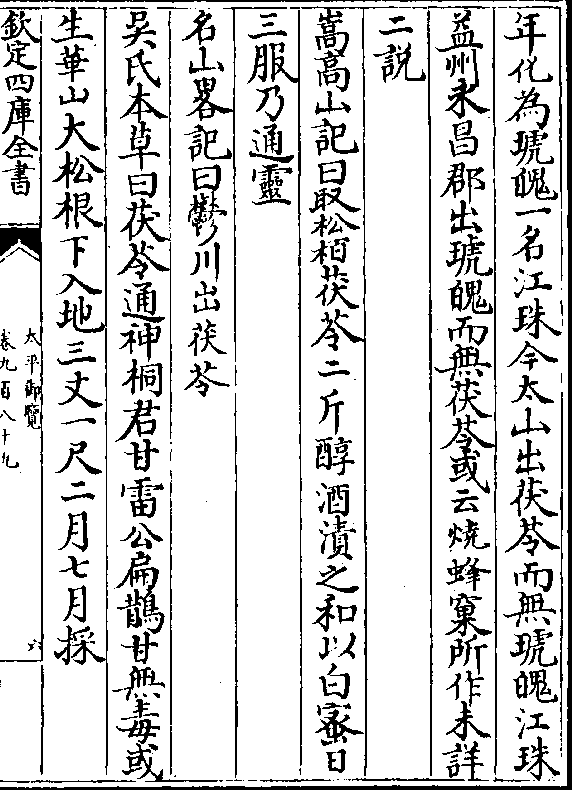 年化為琥魄一名江珠今太山出茯苓而無琥魄江珠
益州永昌郡出琥魄而無茯苓或云燒蜂窠所作未詳
二説
嵩高山記曰取松栢茯苓二斤醇酒漬之和以白蜜日
三服乃通靈
名山畧記曰鬱川出茯苓
吳氏本草曰茯苓通神桐君甘雷公扁鵲甘無毒或
生華山大松根下入地三丈一尺二月七月採
欽定四庫全書
太平御覽
卷九百八十九
六